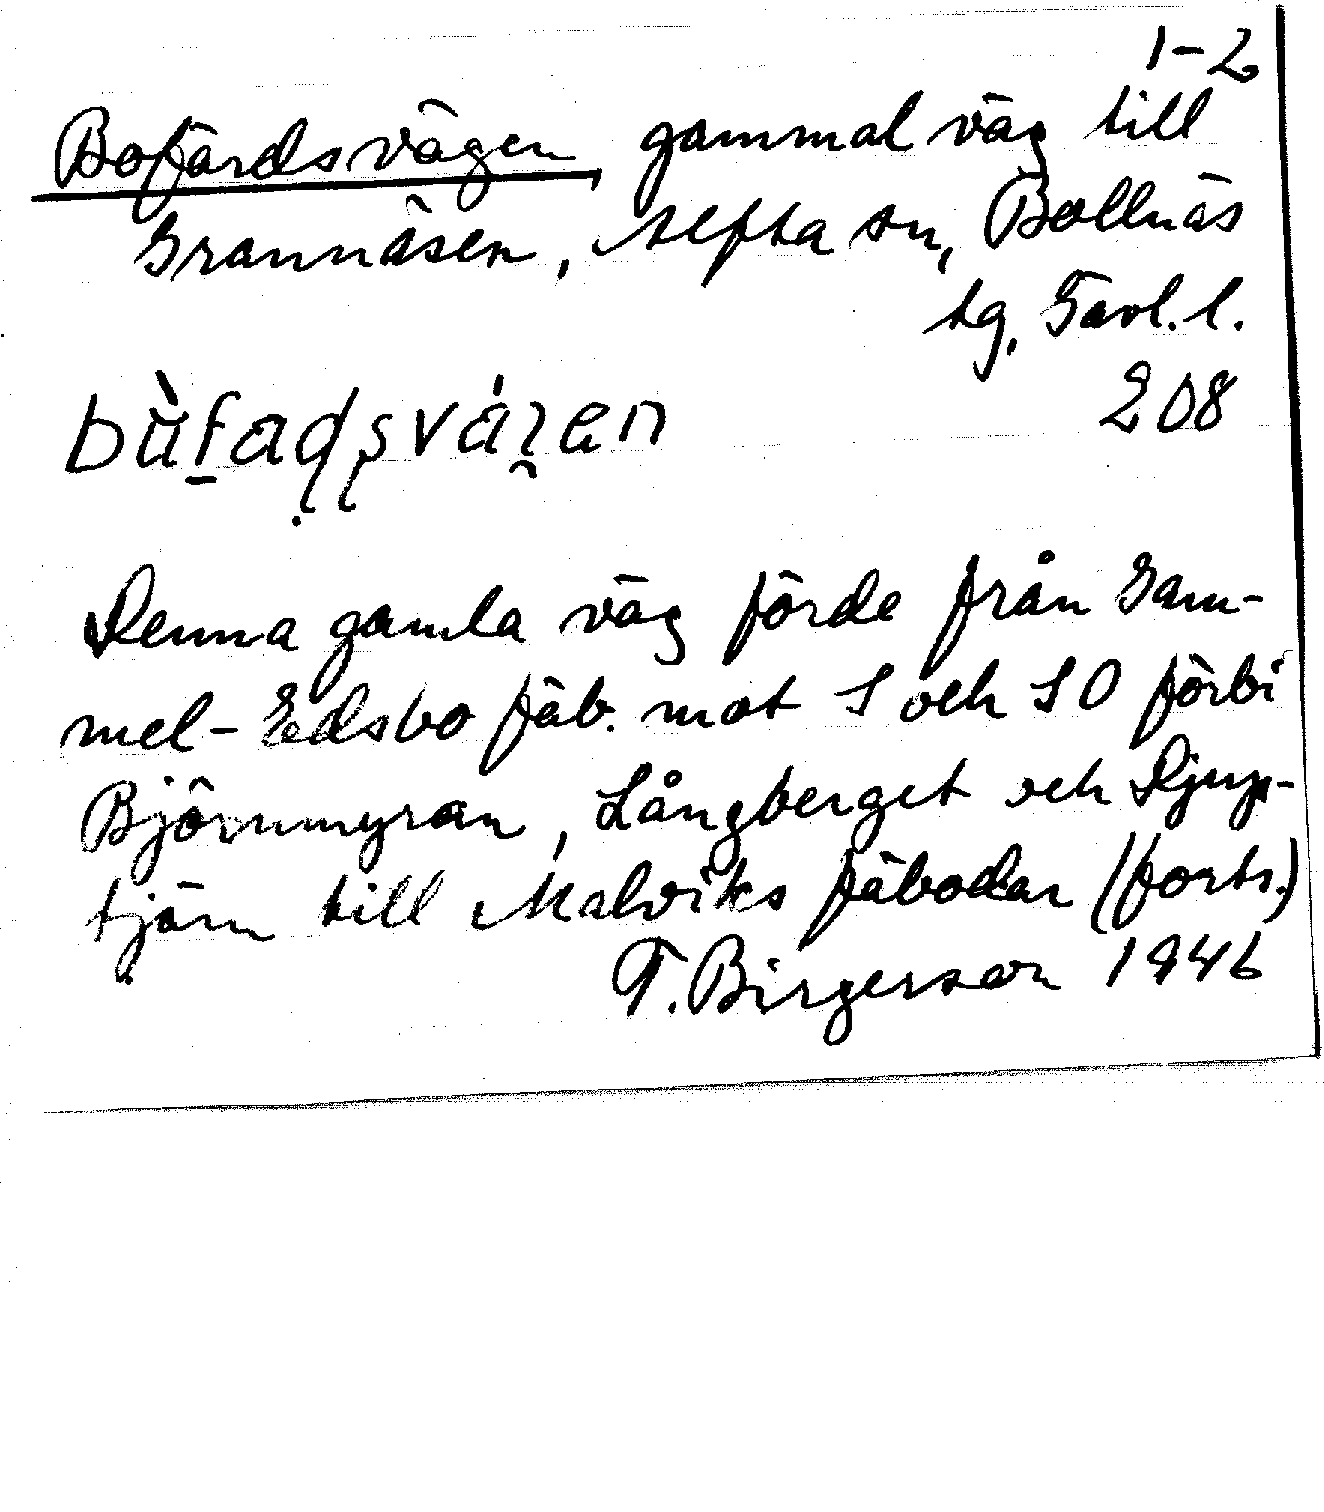 1-2
Bofärdsvägen, gammal väg till
Grannäsen, Alfta sn, Bollnäs
tg, Gävl. l.
208
Denna gamla väg förde från Gam-
mel-Edsbo fäb. mot S och SO förbi
Björnmyran, Långberget och Djup-
tjärn till Malviks fäbodar (forts.)
T. Birgerson 1946